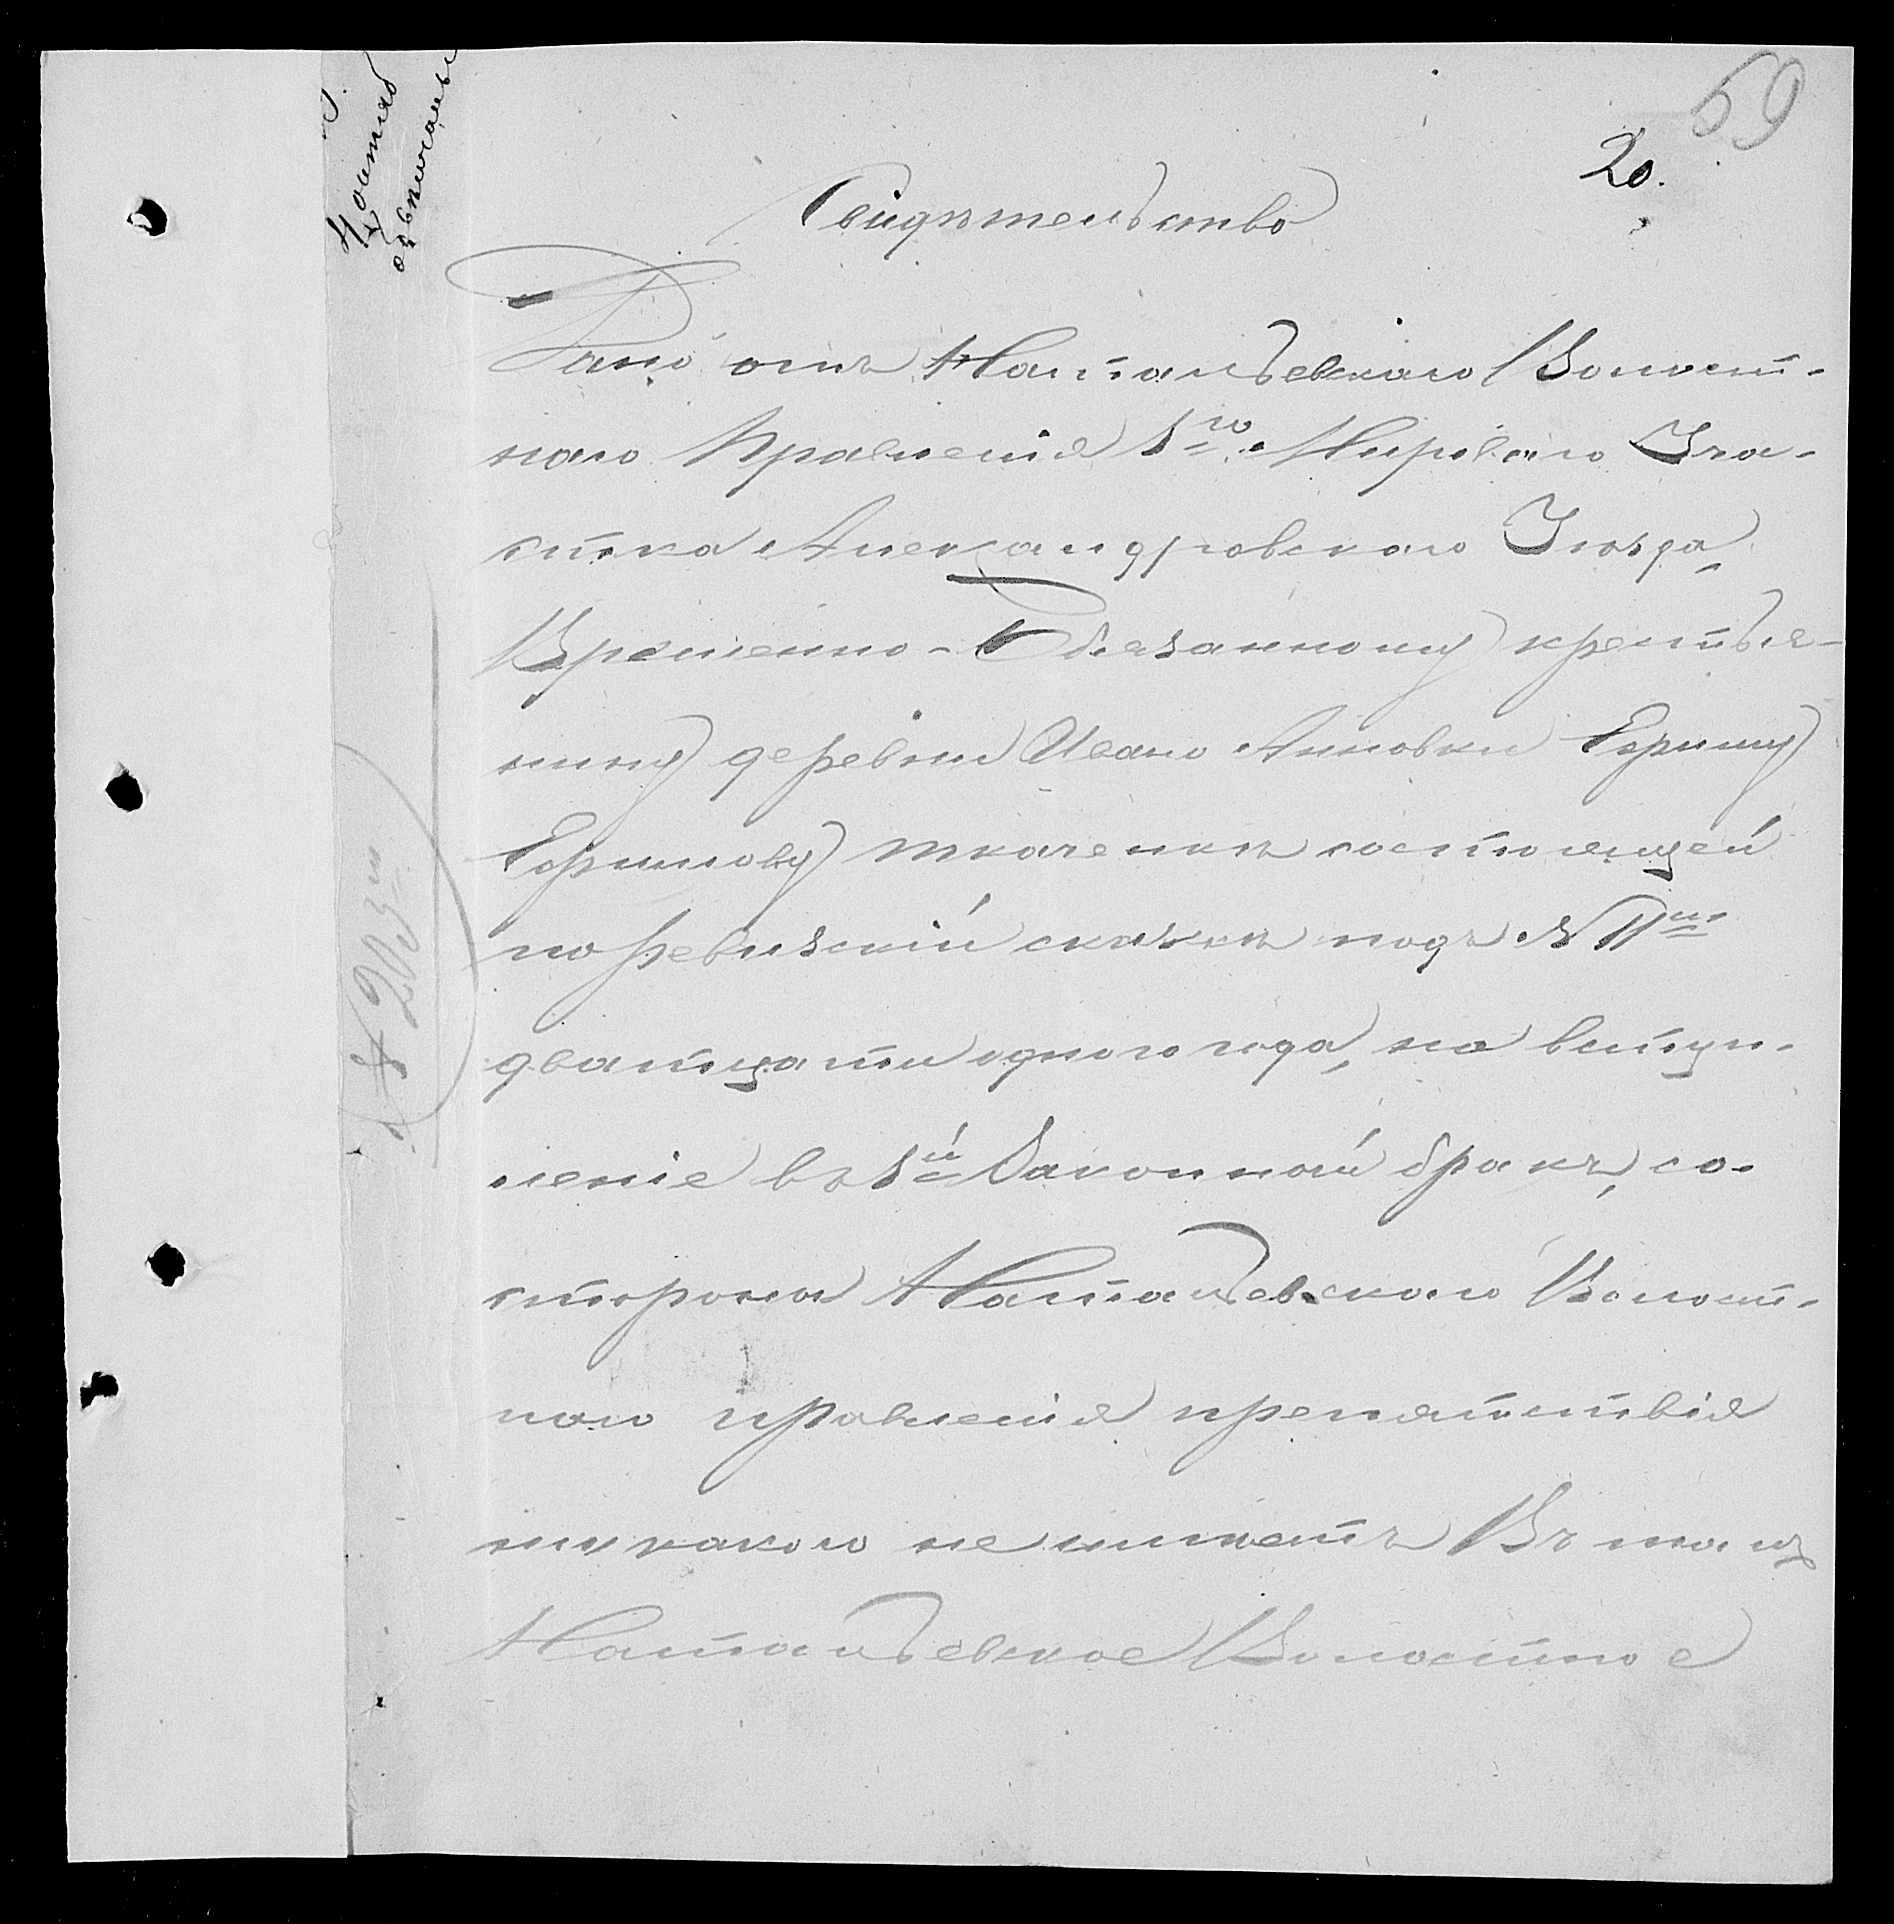 69
20.
Свидѣтельство
Дано отъ Натальевскаго Волост-
наго Правленія 1го Мироваго Уча-
стка Александровскаго Уѣзда,
Временно-Обязанному крестья-
нину деревни Ивано Анновки Ефиму
Ефимову Ткаченкѣ состоящей
по ревизскій сказкѣ подъ № 11мъ
дватцати одного года, на вступ-
леніе въ 1й Законный бракъ, со
стороны Натальевскаго Волост-
наго правленія препятствія
ни какого не имѣетъ Въ томъ
Натальевское Волостное
№ 203